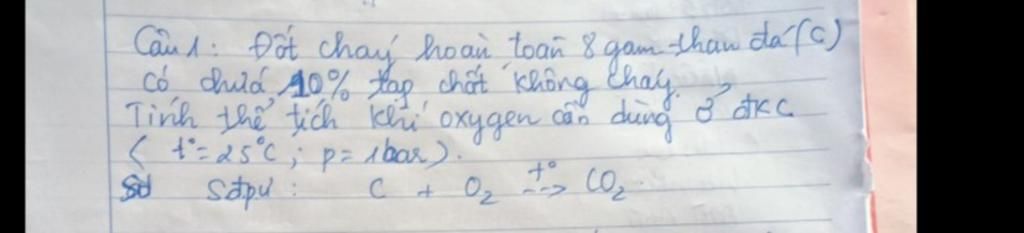 Câu 1: Đốt cháy hoàn toàn 8 gam than đá (C)
có chứa 10% tạp chất không cháy.
Tính thể tích khí oxygen cần dùng ở đkc
( t° = 25°C ; p = 1 bar).
Sđpư : C + O₂ --t°--> CO₂